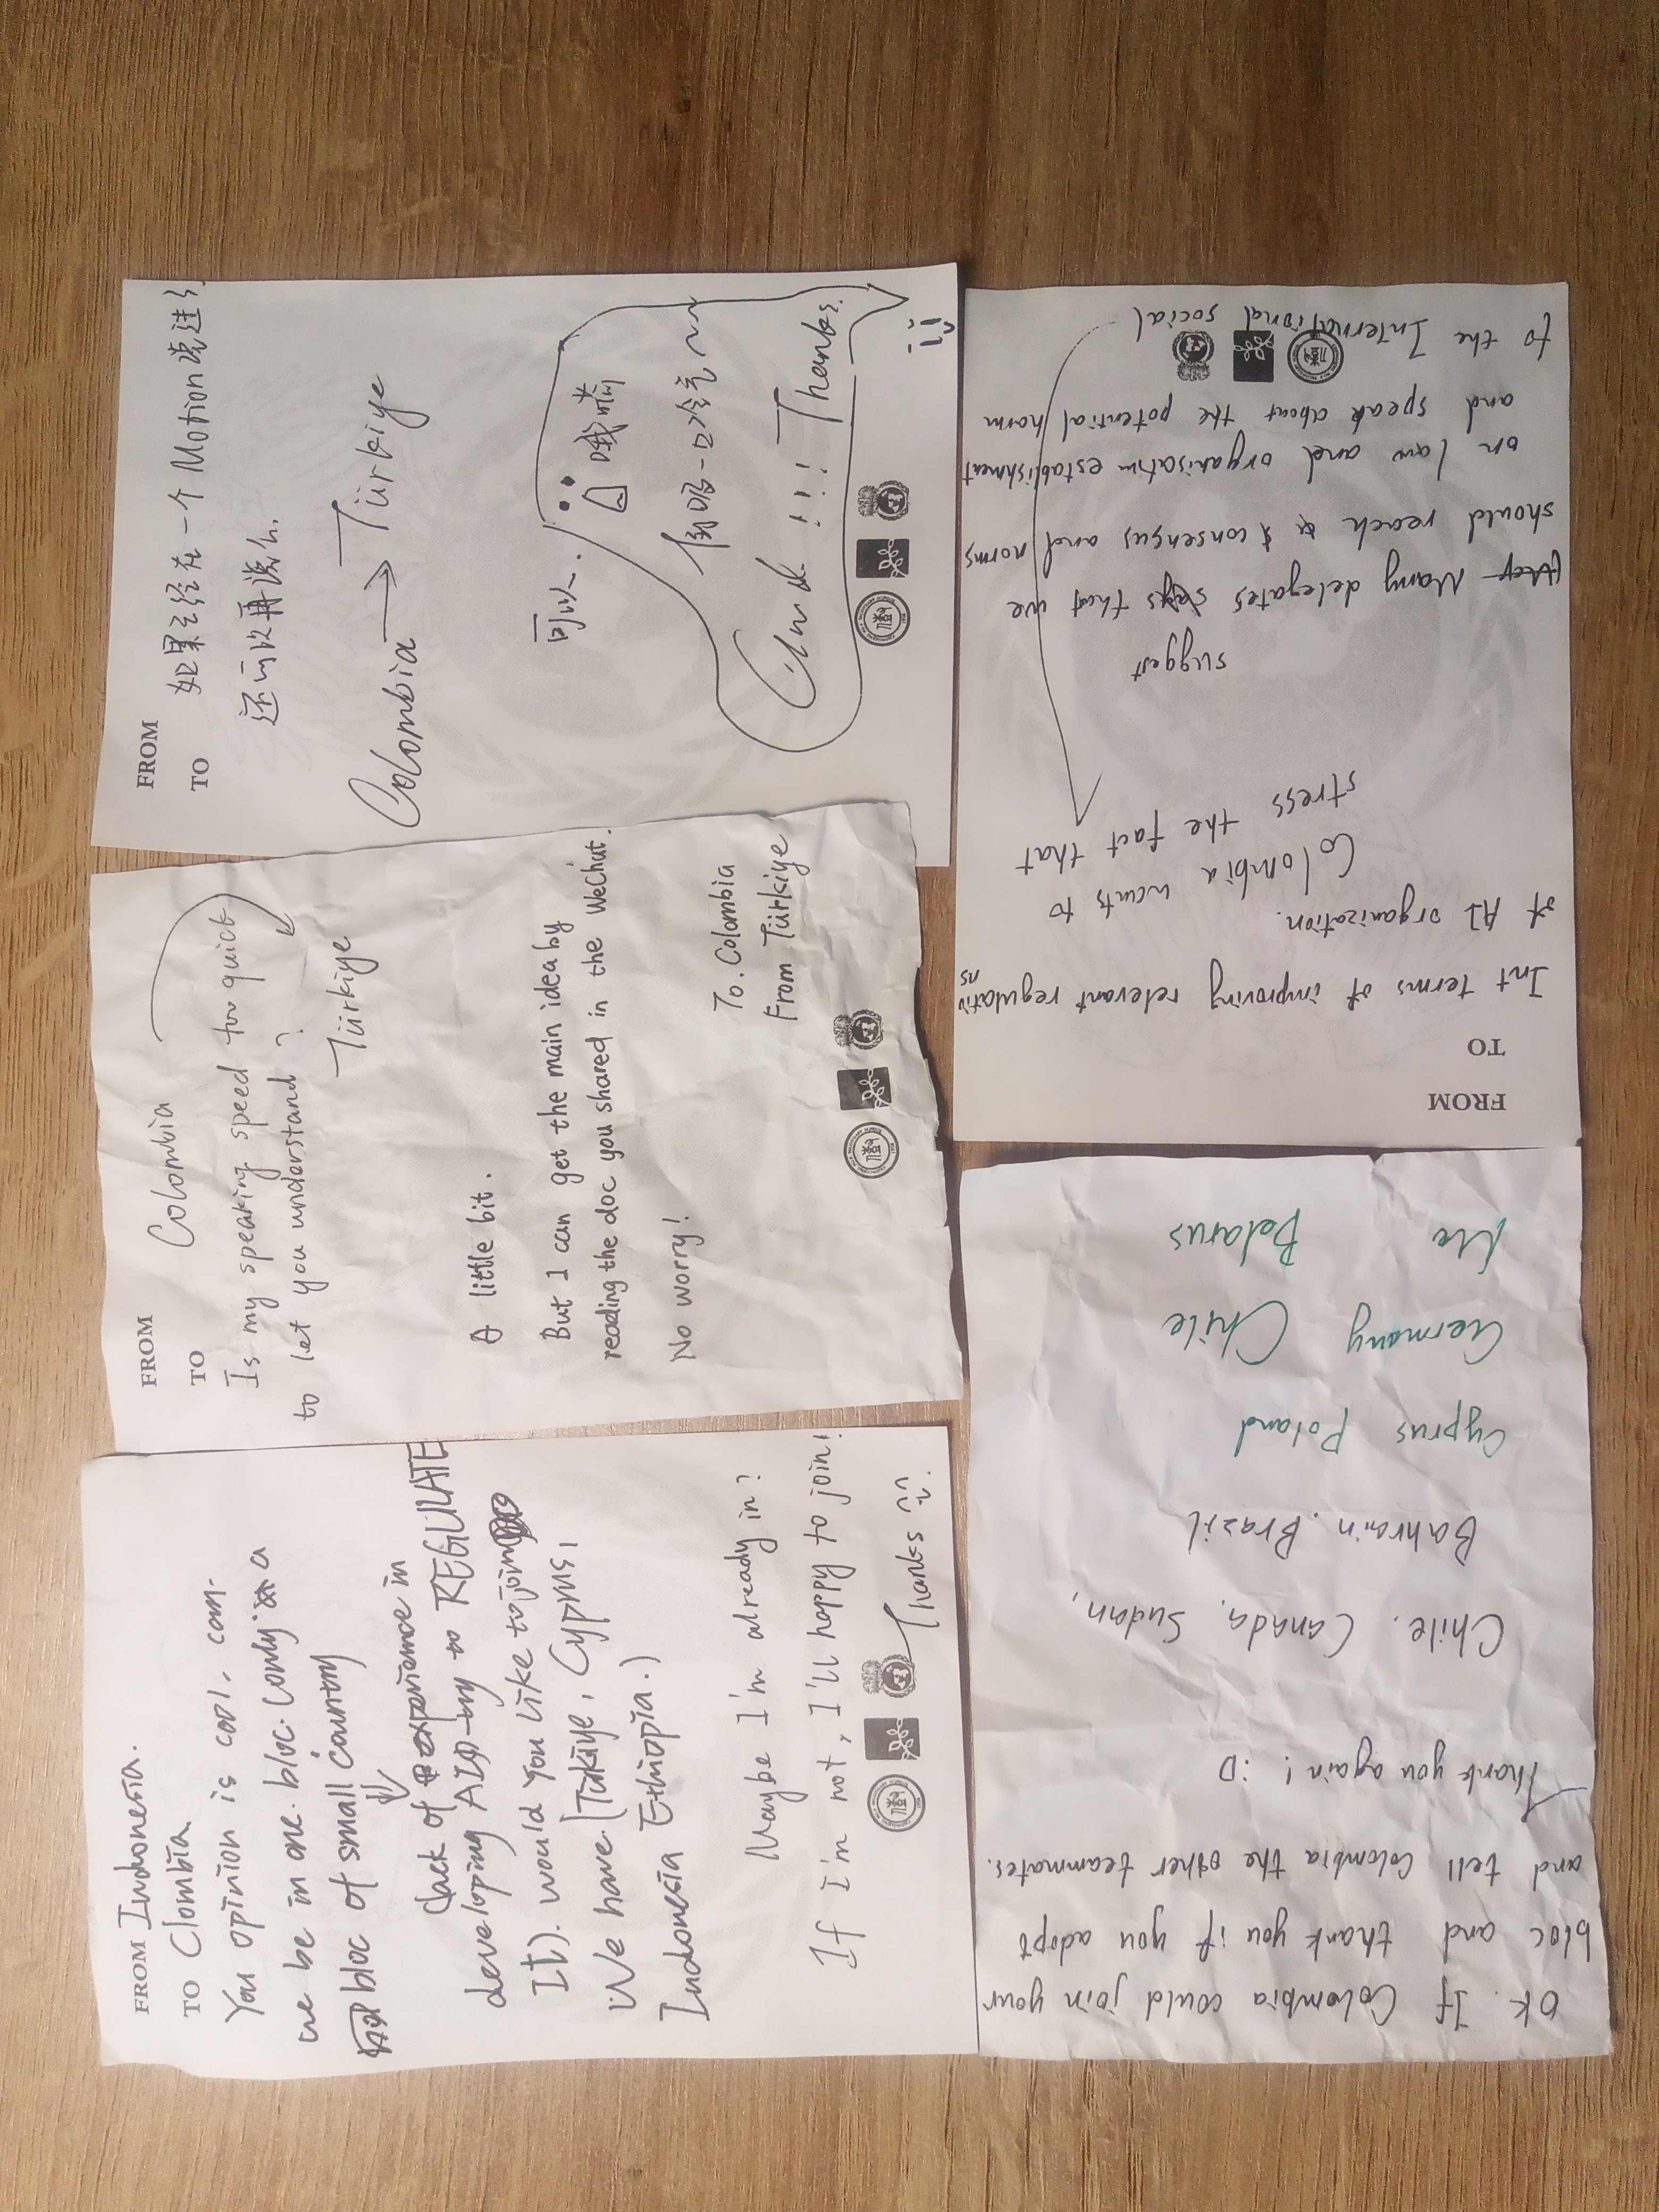 FROM Indonesia.
TO Clombia
You opinion is cool. can
we be in one bloc. (only a
bloc of small country
(lack of experience in
developing AI to REGULATE
It). would you like to join
We have (Tukiye, Cyprus,
Indonesia Ethiopia.)
Maybe I'm already in?
If i'm not, I'll happy to join!
Thanks
FROM Colombia
TO
Is my speaking speed too quick
to let you understand?
Türkiye
A little bit.
But I can get the main idea by
reading the doc you shared in the WeChat.
No worry!
To. Colombia
From Türkiye
FROM
TO
如果已经在一个Motion说过了
还可以再说么
Colombia → Türkiye
可以.
哦嘶
倒吸一口冷气~~
!!! Thanks.
FROM
TO
Int terms of improving relevant regulations
of AI organization.
Colombia wants to
stress the fact that
suggest
Many delegates says that we
should reach consensus and norms
on law and organisation establishment
and speak about the potential harm
to the International social
OK. If Colombia could join your
bloc and thank you if you adopt
and tell Colombia the other teammates.
Thank you again! :D
Chile. Canada. Sudan,
Bahrain. Brazil
Cyprus Poland
Germany Chile
Belarus